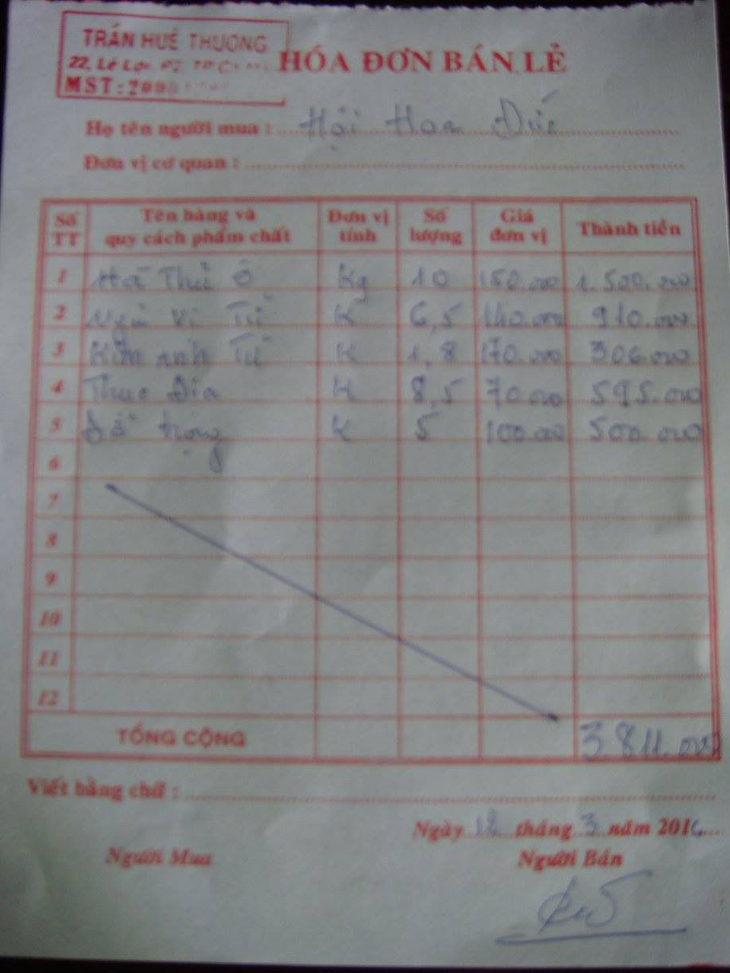 TRẦN HUẾ THƯƠNG
22, Lê Lợi P2, TP C
MST: 2000
HÓA ĐƠN BÁN LẺ
Họ tên người mua : Hội Hoa Đức
Đơn vị cơ quan :
Số TT Tên hàng và quy cách phẩm chất Đơn vị tính Số lượng Giá đơn vị Thành tiền
1 Hà Thủ Ô Kg 10 150.000 1.500.000
2 Ngũ Vị Tử K 6,5 140.000 910.000
3 Kim Anh Tử K 1,8 170.000 306.000
4 Thục Địa K 8,5 70.000 595.000
5 Đỗ trọng K 5 100.000 500.000
6
7
8
9
10
11
12
TỔNG CỘNG 3811.000
Viết bằng chữ :
Ngày 18 tháng 3 năm 2016
Người Mua Người Bán